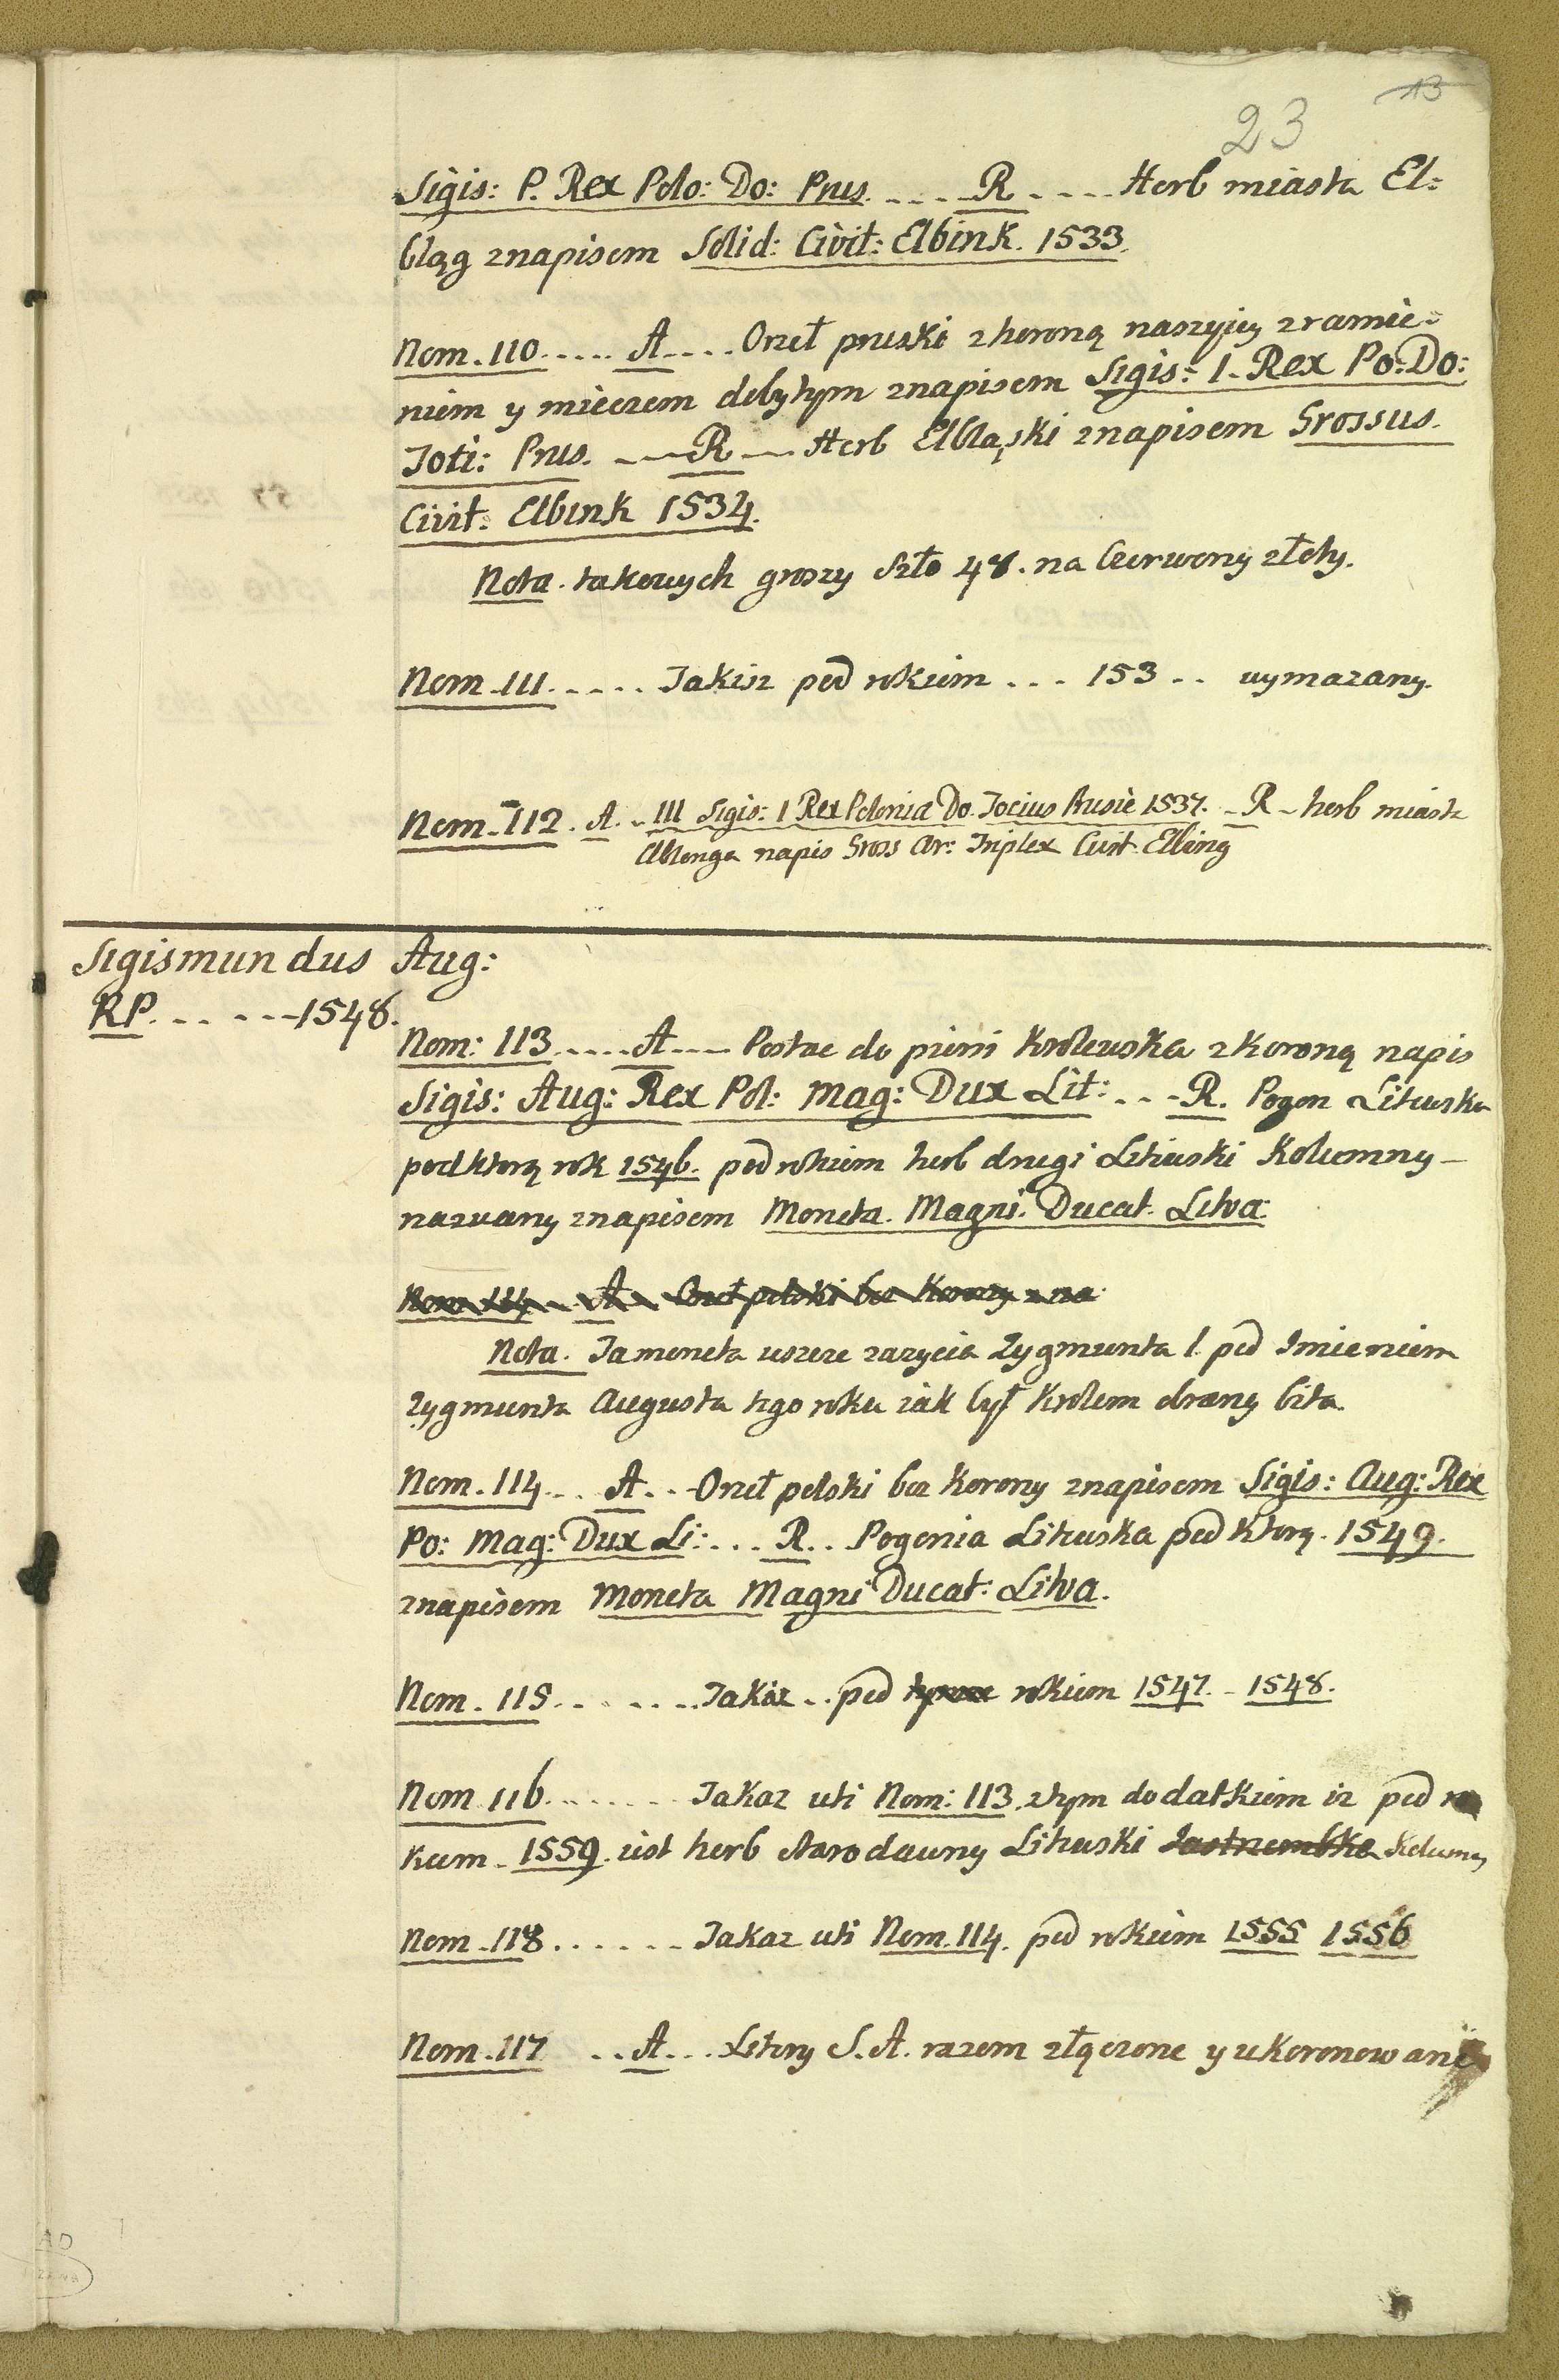 13
23
Sigis: P. Rex Polo: Do: Prus. .... R .... Herb miasta El:
bląg znapisem Solid: Civit: Elbink. 1533.
Nom. 110. .... A .... Orzeł pruski zkoroną naszyiey zramie:
niem y mieczem dobytym znapisem Sigis: I. Rex Po: Do:
Toti: Prus. ---- R ---- Herb Elbląski znapisem Grossus.
Civit: Elbink 1534.
Nota. takowych groszy szło 48. na Czerwony złoty.
Nom. 111. .... Jakisz pod rokiem ... 153 .. wymazany.
Nom. 112. A. - III Sigis: I Rex Polonia Do. Tocius Prusie 1537. - R - herb miasta
Elblonga napis Gross Ar: Triplex Civit. Elbing
Sigismundus Aug:
RP. .. ... 1548.
Nom: 113. .... A .... Postac do piersi Krolewska zkoroną napis
Sigis: Aug: Rex Pol: Mag: Dux Lit: ... R. Pogon Litewska
pod ktorą rok 1546. pod rokiem herb drugi Litewski Kolumny-
nazwany znapisem Moneta. Magni. Ducat. Litva.
Nom 114. A. Orzeł polski bez Korony zna
Nota. Ta moneta ieszcze zazycia Zygmunta I. pod Imieniem
Zygmunta Augusta tego roku iak był Krolem obrany bita.
Nom. 114. .. A. .. Orzeł polski bez Korony znapisem Sigis: Aug: Rex
Po: Mag: Dux Li: ... R. .. Pogonia Litewska pod ktorą. 1549.
znapisem Moneta Magni Ducat: Litva.
Nom. 115. ....... Jakaz .. pod rokiem 1547. - 1548.
Nom 116. ....... Jakaz uti Nom: 113. ztym dodatkiem iz pod ro
kiem. 1559. iest herb starodawny Litewski Jastrzembka Kolumny
Nom. 118. ...... Jakaz uti Nom. 114. pod rokiem 1555 1556
Nom. 117 .. A. .. Litery S. A. razem złączone y ukoronowane